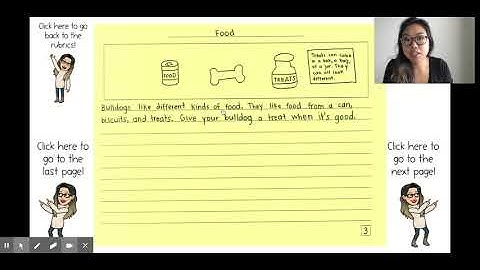 Click here to go
back to the
rubrics!
Food
FOOD
TREATS
Treats can come
in a box, a bag,
or a jar. They
can all look
different.
Bulldogs like different kinds of food. They like food from a can,
biscuits, and treats. Give your bulldog a treat when it's good.
Click here to
go to the
last page!
Click here to
go to the
next page!
3